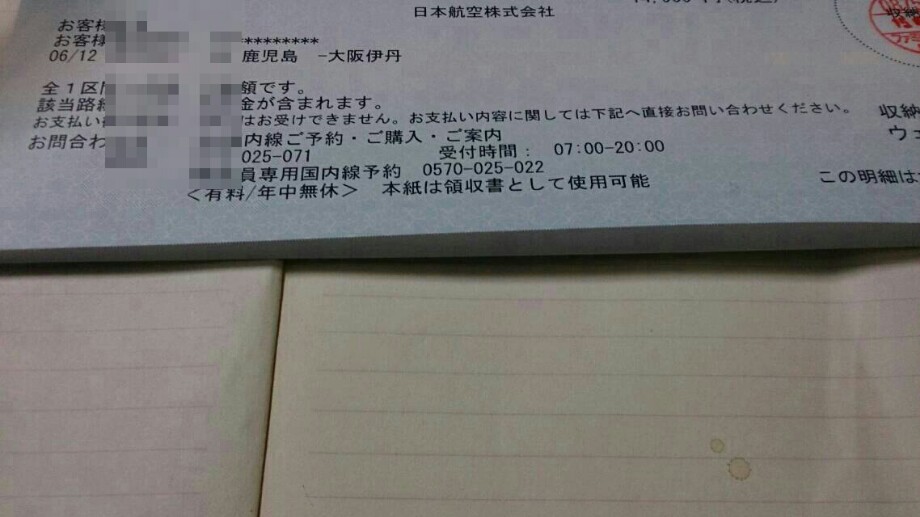 日本航空株式会社
お客様
お客様 **********
06/12 鹿児島 -大阪伊丹
全1区 額です。
該当路 金が含まれます。
お支払い はお受けできません。お支払い内容に関しては下記へ直接お問い合わせください。
お問合わ 内線ご予約・ご購入・ご案内
025-071 受付時間: 07:00-20:00
員専用国内線予約 0570-025-022
<有料/年中無休> 本紙は領収書として使用可能
収納
ウェ
この明細は